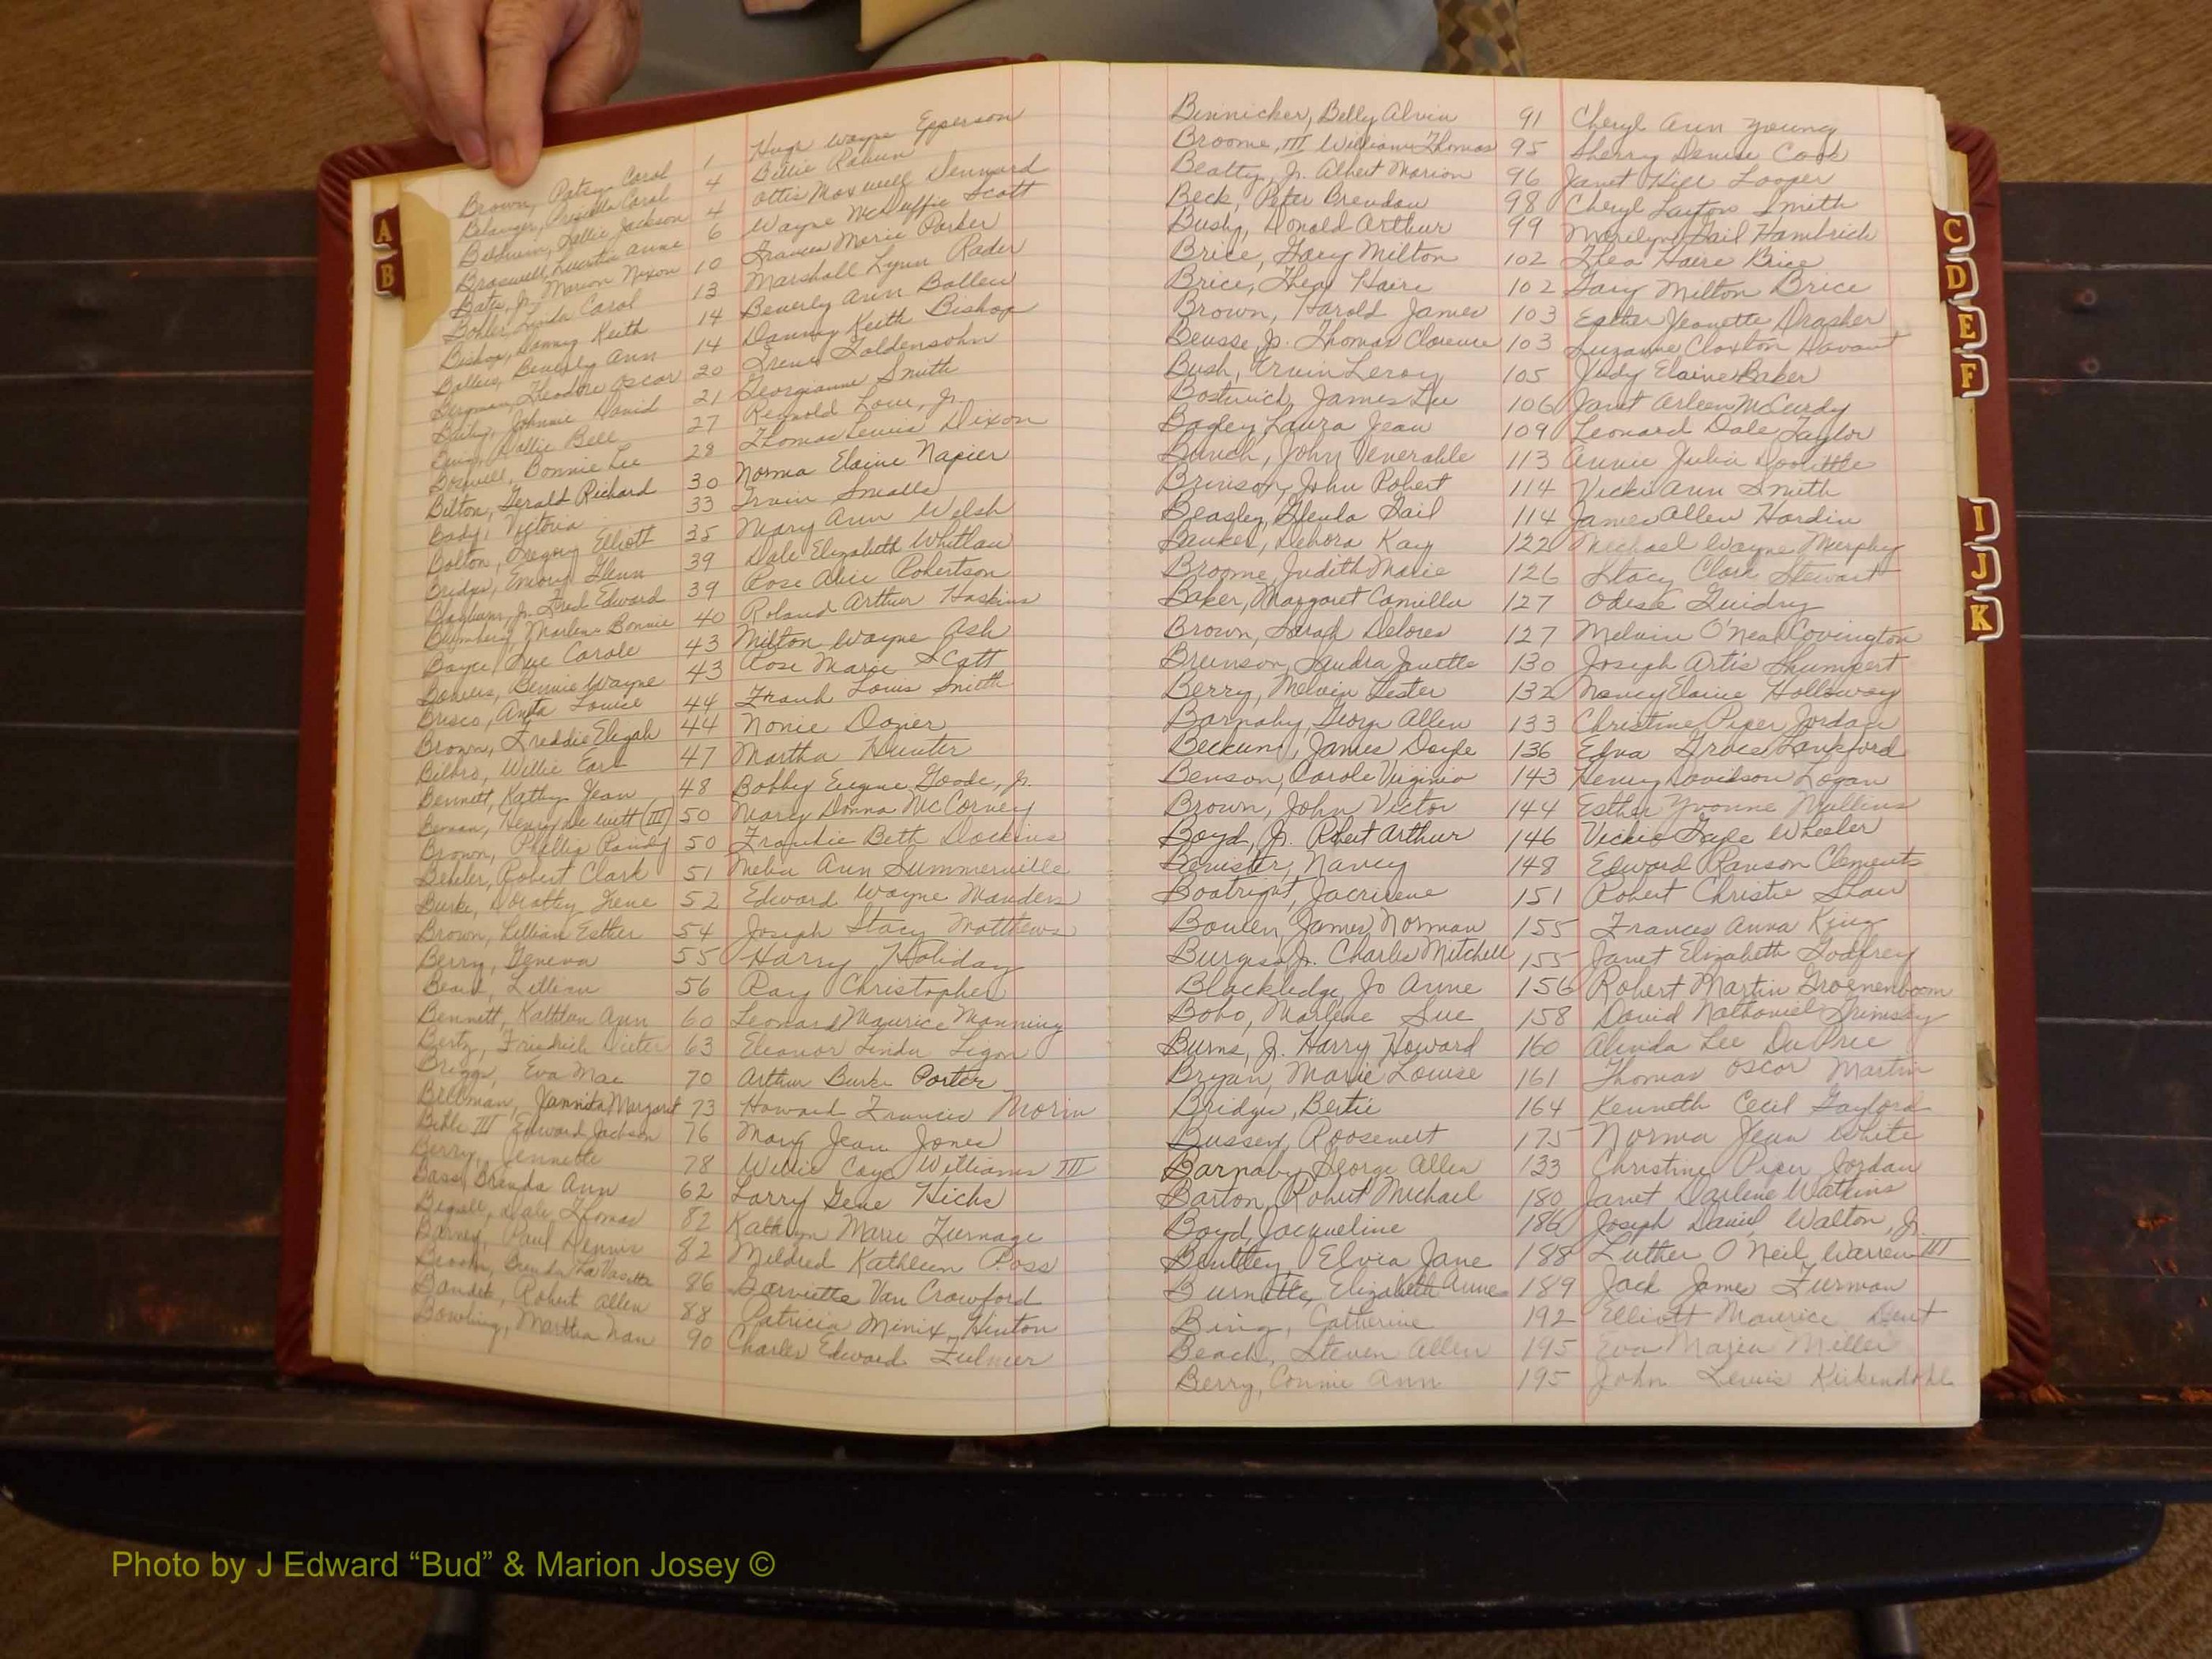 Brown, Patsy Carol 1 Hugh Wayne Epperson
Belanger, Priscilla Carol 4 Billie
Baldwin, Sallie Jackson 4 Ottis Maxwell Dennard
Braswell, Lucretia Anne 6 Wayne McDuffie Scott
Bates, Jr. Marion Nixon 10 Frances Marie Parker
Bohler, Lynda Carol 13 Marshall Lynn Rader
Bishop, Danny Keith 14 Beverly Ann Ballew
Ballew, Beverly Ann 14 Danny Keith Bishop
Bergman, Theodore Oscar 20 Irene Goldensohn
Baity, Johnnie David 21 Georgianne Smith
Dollie Bell 27 Reynold Lowe, Jr.
Boswell, Bonnie Lee 28 Thomas Lewis Dixon
Bilton, Gerald Richard 30 Norma Elaine Napier
Body, Victoria 33 Irvin Smalls
Bolton, Gregory Elliott 35 Mary Ann Welsh
Bridges, Emory Glenn 39 Dale Elizabeth Whitlaw
Jr. Fred Edward 39 Rose Alice Robertson
Blumberg, Marlene Bonnie 40 Roland Arthur Haskins
Boyce, Sue Carole 43 Milton Wayne Ash
Bowers, Bennie Wayne 43 Rose Marie Scott
Brisco, Anita Louise 44 Frank Louis Smith
Brown, Freddie Elijah 44 Nonie Dozier
Bilbro, Willie Earl 47 Martha Hunter
Bennett, Kathy Jean 48 Bobby Eugene Goode, Jr.
Beman, Henry DeWitt (III) 50 Mary Donna McCorney
Brown, Phillip Randy 50 Frankie Beth Dockins
Robert Clark 51 Melva Ann Summerville
Burke, Dorothy Irene 52 Edward Wayne Manders
Brown, Lillian Esther 54 Joseph Stacy Matthews
Berry, Geneva 55 Harry Holiday
Beard, Lillian 56 Ray Christopher
Bennett, Kathleen Ann 60 Leonard Maurice Manning
Bertz, Friedrich Dieter 63 Eleanor Linda Ligon
Briggs, Eva Mae 70 Arthur Burke Porter
Bellman, Jannita Margaret 73 Howard Francis Morin
Bible III Edward Jackson 76 Mary Jean Jones
Berry, Jennette 78 Willie Caye Williams III
Bass, Brenda Ann 62 Larry Gene Hicks
Dale Thomas 82 Kathryn Marie Turnage
Barney, Paul Dennis 82 Mildred Kathleen Poss
Brenda LaVasette 86 Darviette Van Crawford
Robert Allen 88 Patricia Minix Hinton
Bowling, Martha Nan 90 Charles Edward Fulmer
Binnicker, Belly Alvin 91 Cheryl Ann Young
Broome, III William Thomas 95 Sherry Denise Cook
Beatty, Jr. Albert Marion 96 Janet Hill Looper
Beck, Peter Brendan 98 Cheryl Layton Smith
Busby, Donald Arthur 99 Marilyn Gail Hambrick
Brice, Gary Milton 102 Thea Haire Brice
Brice, Thea Haire 102 Gary Milton Brice
Brown, Harold James 103 Esther Jeanette Drasher
Beusse, Jr. Thomas Clarence 103 Suzanne Claxton Havant
Bush, Ervin Leroy 105 Judy Elaine Baker
Bostwick, James Lee 106 Janet Arleen McCurdy
Bagley, Laura Jean 109 Leonard Dale Taylor
Bunch, John Venerable 113 Annie Julia Doolittle
Brinson, John Robert 114 Vickie Ann Smith
Beasley, Glenda Gail 114 James Allen Hardin
Debora Kay 122 Michael Wayne Murphy
Broome, Judith Marie 126 Stacy Clark Stewart
Baker, Margaret Camilla 127 Odise Guidry
Brown, Sarah Delores 127 Melvin O'Neal Covington
Brunson, Sandra Janette 130 Joseph Artis Shumpert
Berry, Melvin Lester 132 Nancy Elaine Holloway
Barnaby, George Allen 133 Christine Piper Jordan
Beckum, James Doyle 136 Edna Grace Lankford
Benson, Carole Virginia 143 Henry Davidson Logan
Brown, John Victor 144 Esther Yvonne Mullins
Boyd, Jr. Robert Arthur 146 Vickie Gayle Wheeler
Banister, Nancy 148 Edward Ranson Clements
Boatright, Jacriene 151 Robert Christie Slaw
Bowlen, James Norman 155 Frances Anna King
Burgess, Jr. Charles Mitchell 155 Janet Elizabeth Godfrey
Blackledge, Jo Anne 156 Robert Martin Groenenboom
Bobo, Marlene Sue 158 David Nathaniel Grimsley
Burns, Jr. Harry Howard 160 Alinda Lee DuPree
Bryan, Marie Louise 161 Thomas Oscar Martin
Bridges, Bertie 164 Kenneth Cecil Gaylord
Bussey, Roosevert 175 Norma Jean White
Barnaby, George Allen 133 Christine Piper Jordan
Barton, Robert Michael 180 Janet Darlene Watkins
Boyd, Jacqueline 186 Joseph David Walton, Jr.
Bentley, Elvia Jane 188 Luther O'Neil Warren III
Burnette, Elizabeth Anne 189 Jack James Furman
Bing, Catherine 192 Elliott Maurice Dent
Beach, Steven Allen 195 Eva Maria Miller
Berry, Connie Ann 195 John Lewis Kirkendohl
A
B
C
D
E
F
I
J
K
Photo by J Edward “Bud” & Marion Josey ©